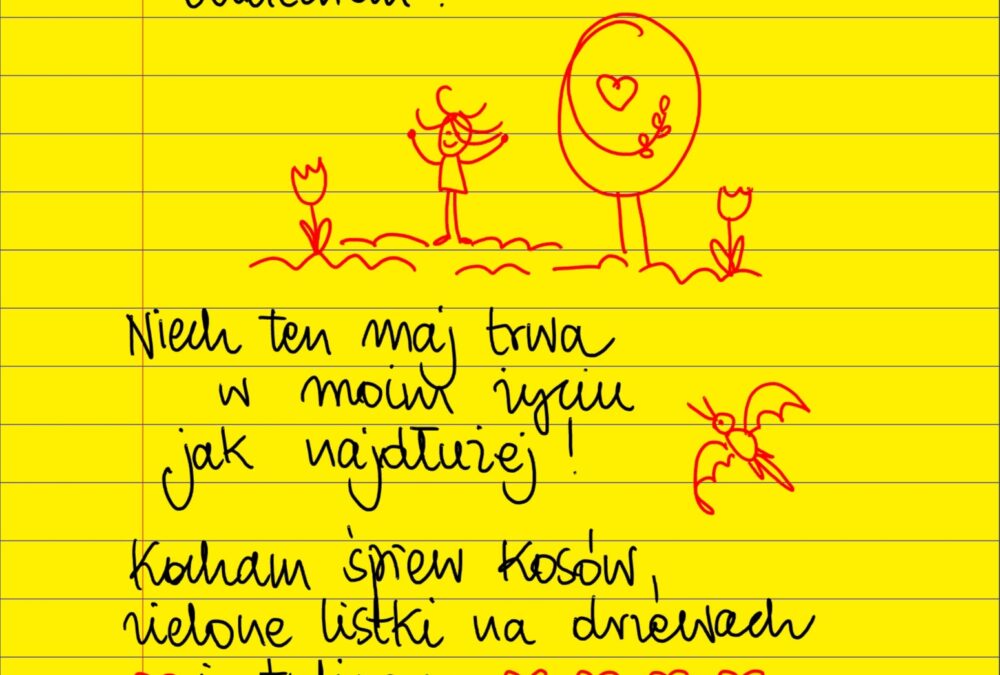 Niech ten maj trwa
w moim życiu
jak najdłużej!
Kocham śpiew kosów,
zielone listki na drzewach